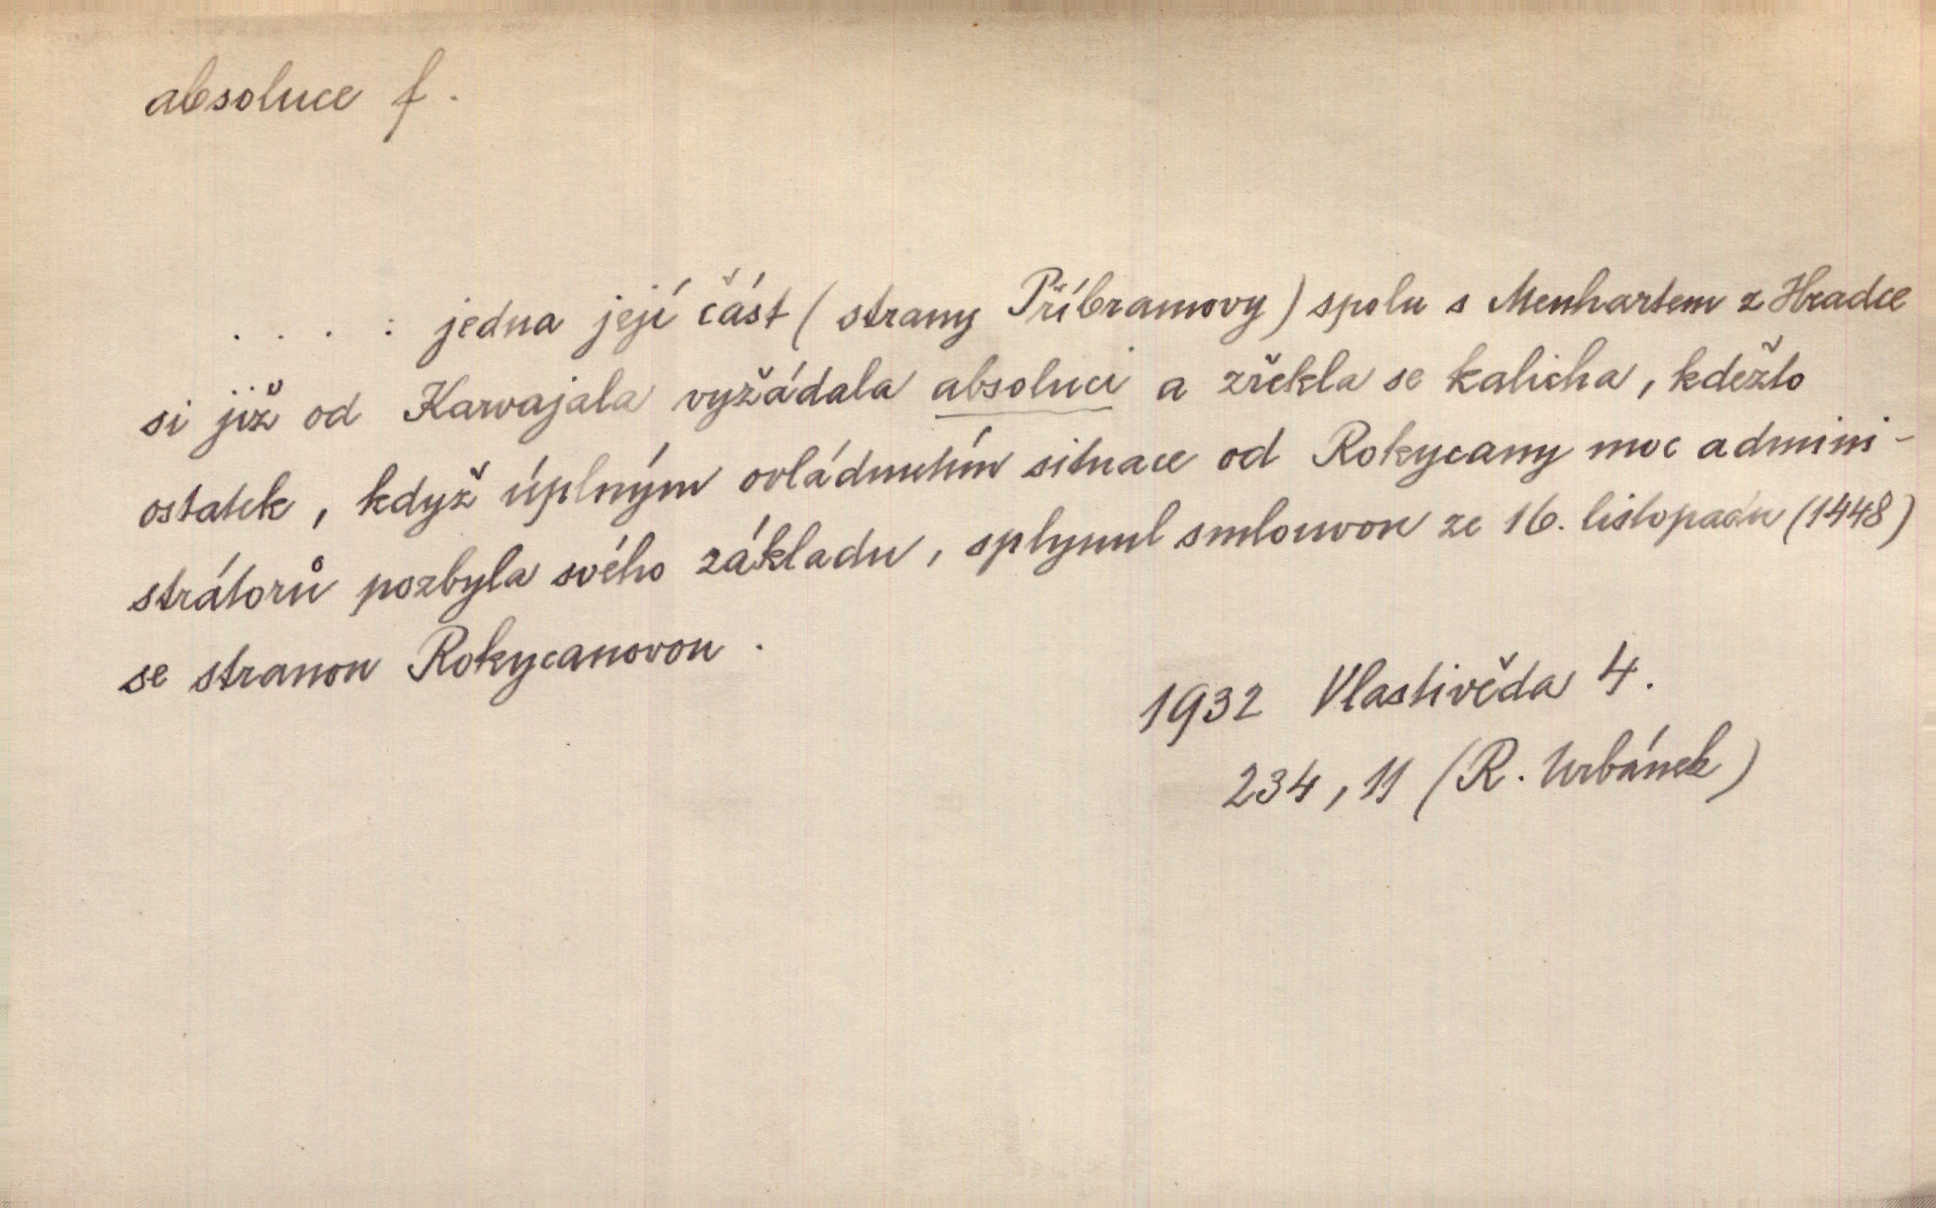 absoluce f.
. . . : jedna její část (strany Příbramovy) spolu s Menhartem z Hradce
si již od Karvajala vyžádala absoluci a zřekla se kalicha, kdežto
ostatek, když úplným ovládnutím situace od Rokycany moc admini-
strátorů pozbyla svého základu, splynul smlouvou ze 16. listopadu (1448)
se stranou Rokycanovou.
1932 Vlastivěda 4.
234, 11 (R. Urbánek)